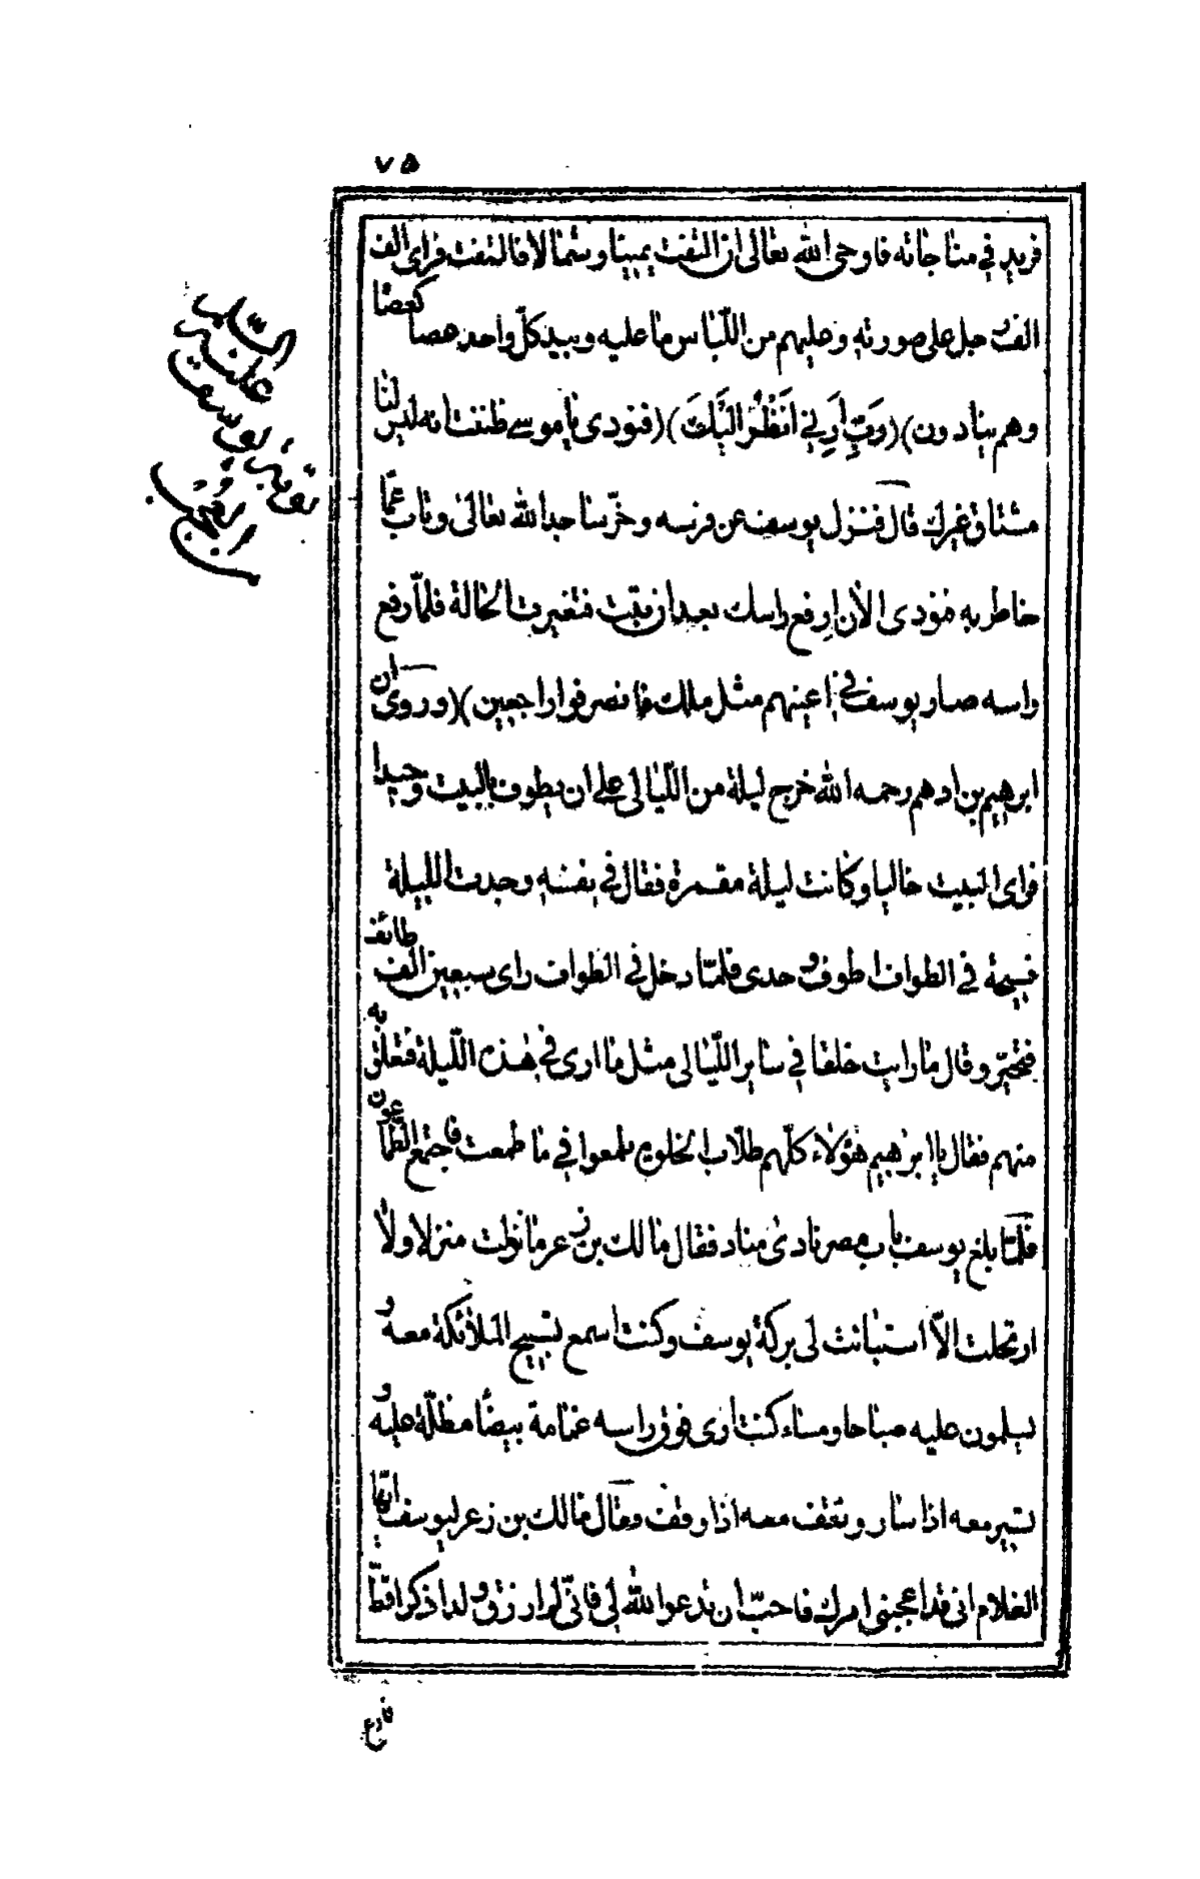 ٧٥
فريد في مناجاته فاوحى الله تعالى ان التفت يمينا وشمالا فالتفت فراى الف
الف جبل على صورته وعليهم من اللباس ما عليه وبيد كلّ واحد عصا كعصا
وهم ينادون)(رَبِّ اَرِنِي اَنْظُرْ اِلَيْكَ)(فنودى يا موسى ظننت انه ليس لنا
مشتاق غيرك قال فنزل يوسف عن فرسه وخرّ ساجدا لله تعالى وتاب عمّا
خاطر به فنودى الآن ارفع راسك بعد ان تبت فتغيرت الحالة فلمّا رفع
راسه صار يوسف في اعينهم مثل ملك فانصرفوا راجعين)(وروى ان
ابرهيم بن ادهم رحمه الله خرج ليلة من اللّيالى على ان يطوف بالبيت وحيدا
فراى البيت خاليا وكانت ليلة مقمرة فقال في نفسه وجدت الليلة
فسيحة في الطواف اطوف وحدى فلمّا دخل في الطواف راى سبعين الف طائف
فتحيّر وقال ما رايت خلقا في ساير اللّيالى مثل ما ارى في هذه اللّيلة فتعلق به
منهم فقال يا ابرهيم هؤلاء كلّهم طلّاب الخلوة طمعوا في ما طمعت فاجتمع الطمّاعون
فلمّا بلغ يوسف باب مصر نادى مناد فقال مالك بن زعر ما نزلت منزلا ولا
ارتحلت الّا استبانت لى بركة يوسف وكنت اسمع تسبيح الملائكة معه و
يسلمون عليه صباحا ومساء كنت ارى فوق راسه غمامة بيضا مظلّة عليه و
تسير معه اذا سار وتقف معه اذا وقف وقال مالك بن زعر ليوسف ايّها
الغلام انى قد اعجبنى امرك فاحبّ ان تدعو الله لى فانّى لم ارزق ولدا ذكرا قطّ
توبة يوسف
عليه السّلام
من العجب
فادع